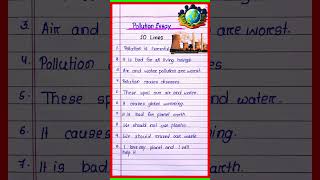 Pollution Essay
10 Lines
1. Pollution is harmful
2. It is bad for all living beings.
3. Air and water pollution are worst.
4. Pollution causes diseases.
5. These spoil our air and water.
6. It causes global warming.
7. It is bad for planet earth.
8. We should not use plastic.
9. We should reduce our waste.
10. I love my planet and I will
help it.
3. Air and
4. Pollution
5. These
6. It causes
7. It is bad
are worst.
water.